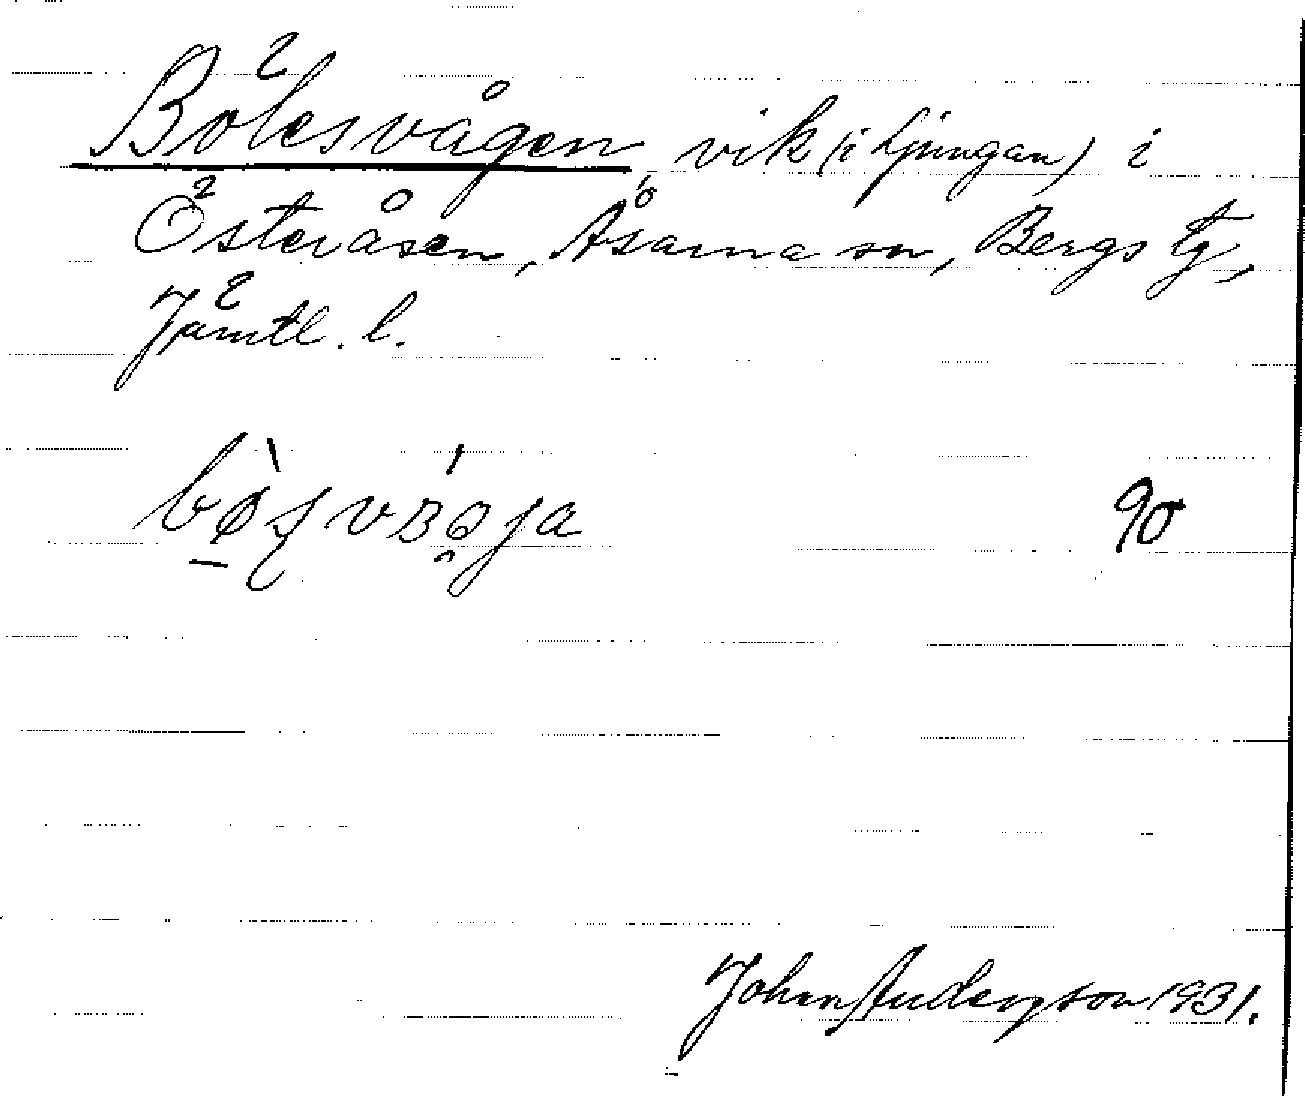 Bölesvågen vik (i Ljungan) i
Österåsen, Åsarna sn, Bergs tg,
Jämtl. l.
90
Johan Anderson 1931.